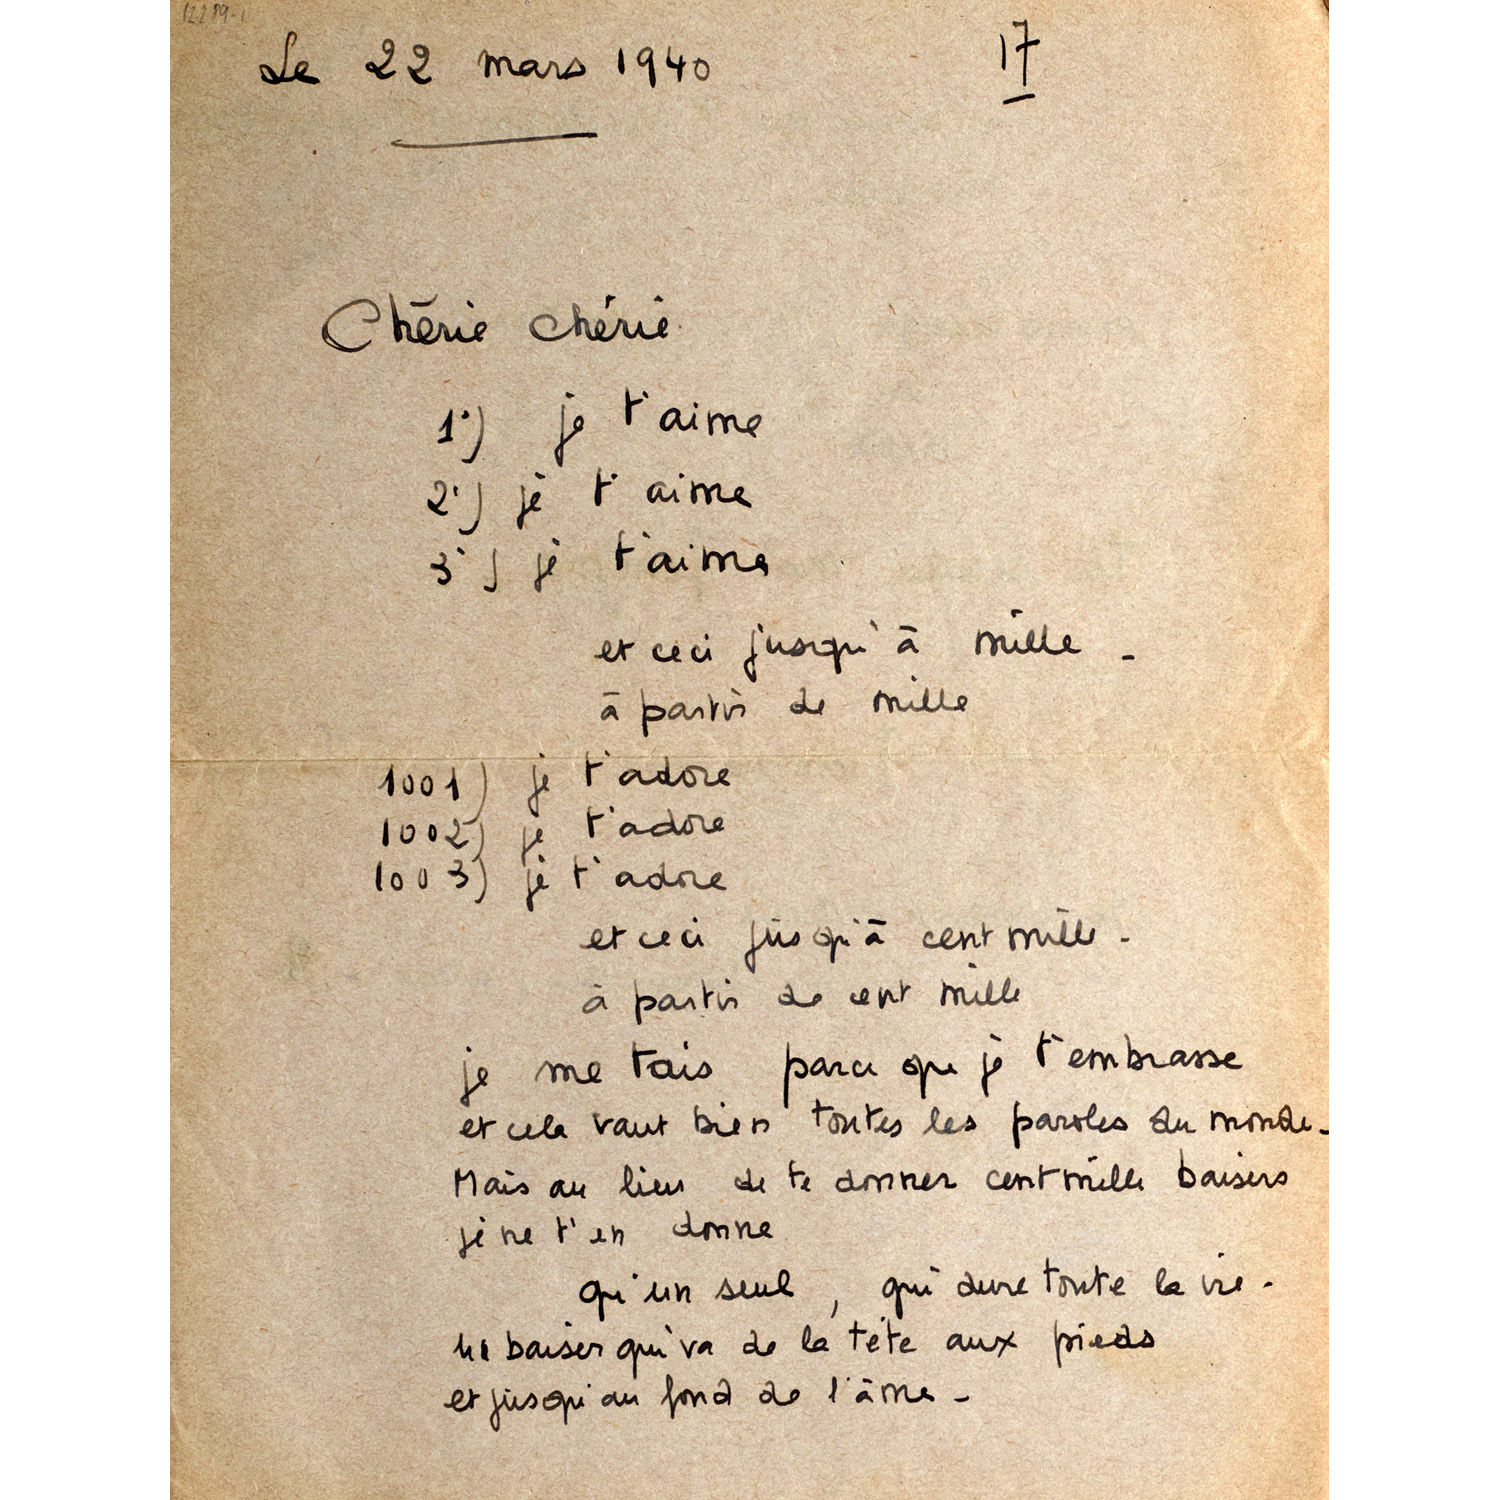 12289-1
Le 22 mars 1940 17
Chérie chérie
1°) je t'aime
2°) je t'aime
3°) je t'aime
et ceci jusqu'à mille -
à partir de mille
1001) je t'adore
1002) je t'adore
1003) je t'adore
et ceci jusqu'à cent mille -
à partir de cent mille
je me tais parce que je t'embrasse
et cela vaut bien toutes les paroles du monde -
Mais au lieu de te donner cent mille baisers
je ne t'en donne
qu'un seul, qui dure toute la vie -
un baiser qui va de la tête aux pieds
et jusqu'au fond de l'âme -